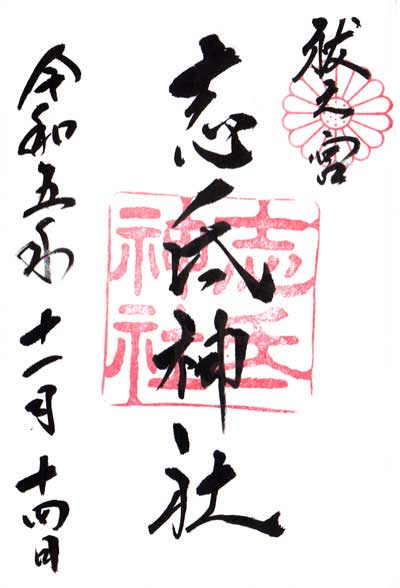 祓 宮
志氐神社
志氐
神社
令和五年十一月十四日